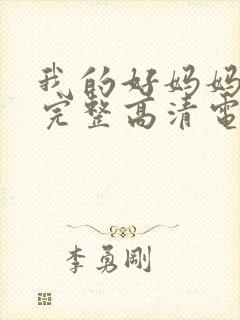 我的好妈妈
完整高清電
李勇剛